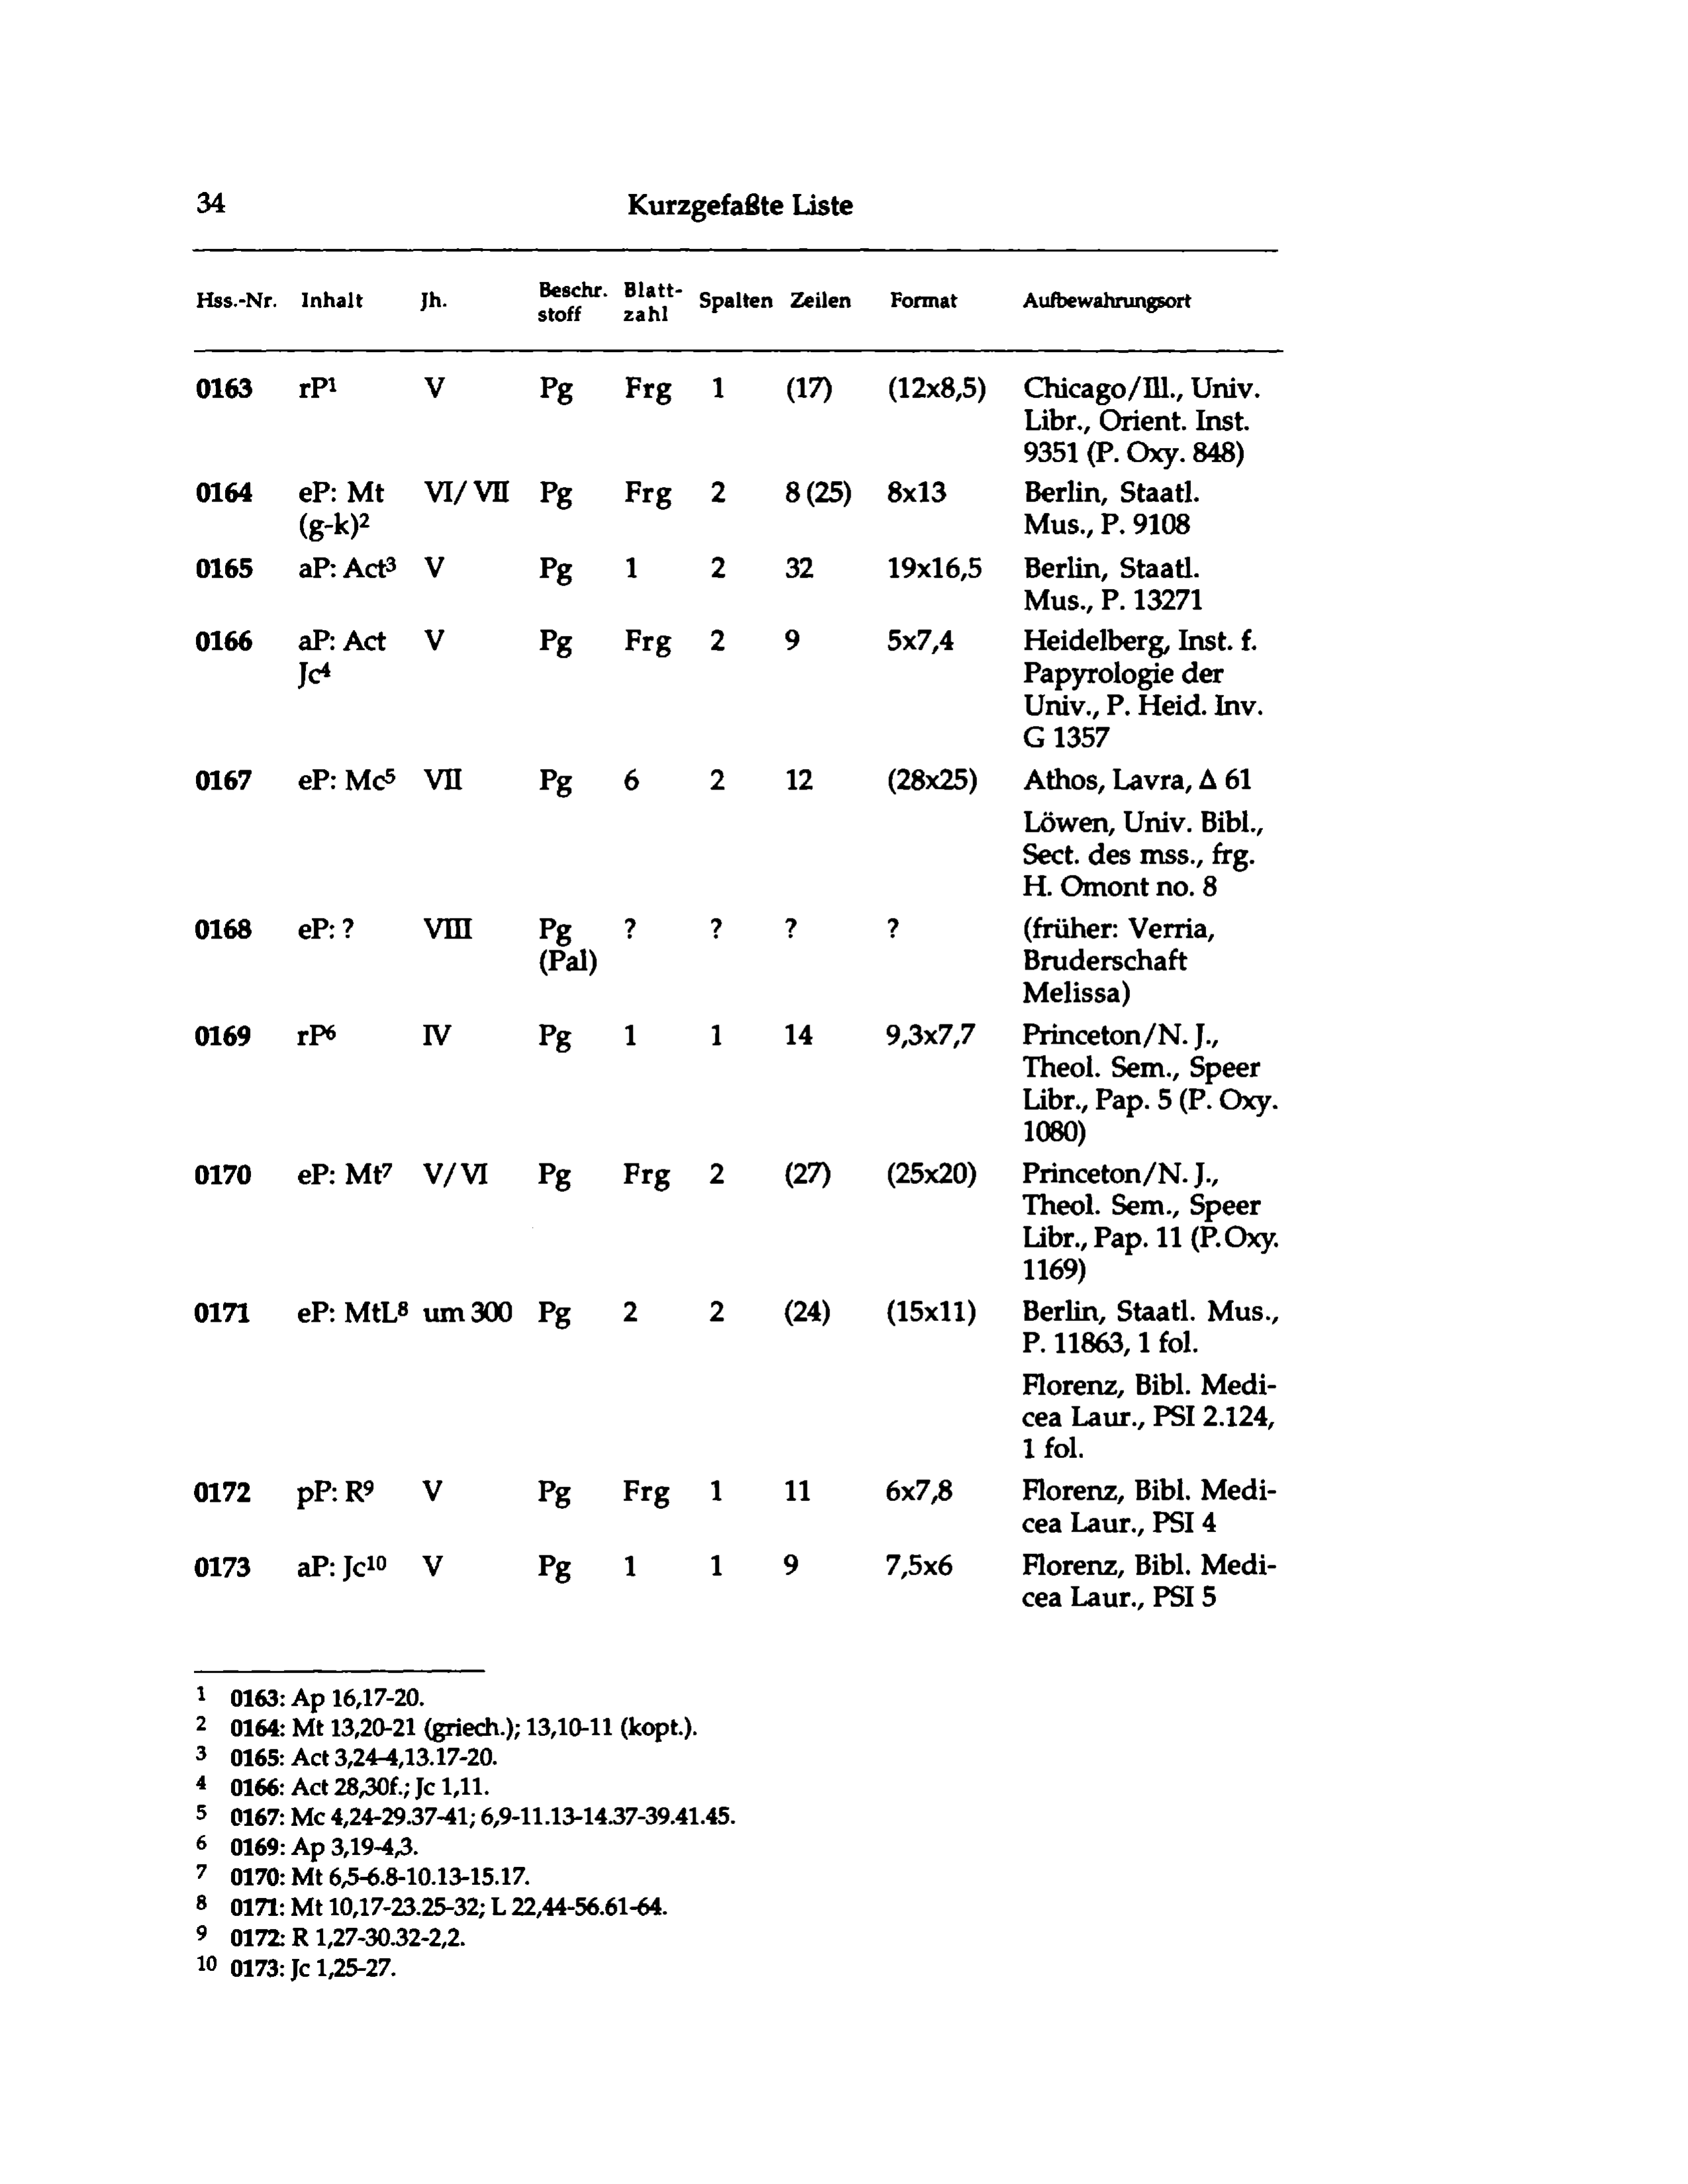 34 Kurzgefaßte Liste
Hss.-Nr. Inhalt Jh. Beschr. stoff Blatt- zahl Spalten Zeilen Format Aufbewahrungsort
0163 rP¹ V Pg Frg 1 (17) (12x8,5) Chicago/Ill., Univ.
Libr., Orient. Inst.
9351 (P. Oxy. 848)
0164 eP: Mt VI/VII Pg Frg 2 8 (25) 8x13 Berlin, Staatl.
(g-k)² Mus., P. 9108
0165 aP: Act³ V Pg 1 2 32 19x16,5 Berlin, Staatl.
Mus., P. 13271
0166 aP: Act V Pg Frg 2 9 5x7,4 Heidelberg, Inst. f.
Jc⁴ Papyrologie der
Univ., P. Heid. Inv.
G 1357
0167 eP: Mc⁵ VII Pg 6 2 12 (28x25) Athos, Lavra, Δ 61
Löwen, Univ. Bibl.,
Sect. des mss., frg.
H. Omont no. 8
0168 eP: ? VIII Pg ? ? ? ? (früher: Verria,
(Pal) Bruderschaft
Melissa)
0169 rP⁶ IV Pg 1 1 14 9,3x7,7 Princeton/N. J.,
Theol. Sem., Speer
Libr., Pap. 5 (P. Oxy.
1080)
0170 eP: Mt⁷ V/VI Pg Frg 2 (27) (25x20) Princeton/N. J.,
Theol. Sem., Speer
Libr., Pap. 11 (P.Oxy.
1169)
0171 eP: MtL⁸ um 300 Pg 2 2 (24) (15x11) Berlin, Staatl. Mus.,
P. 11863, 1 fol.
Florenz, Bibl. Medi-
cea Laur., PSI 2.124,
1 fol.
0172 pP: R⁹ V Pg Frg 1 11 6x7,8 Florenz, Bibl. Medi-
cea Laur., PSI 4
0173 aP: Jc¹⁰ V Pg 1 1 9 7,5x6 Florenz, Bibl. Medi-
cea Laur., PSI 5
1 0163: Ap 16,17-20.
2 0164: Mt 13,20-21 (griech.); 13,10-11 (kopt.).
3 0165: Act 3,24-4,13.17-20.
4 0166: Act 28,30f.; Jc 1,11.
5 0167: Mc 4,24-29.37-41; 6,9-11.13-14.37-39.41.45.
6 0169: Ap 3,19-4,3.
7 0170: Mt 6,5-6.8-10.13-15.17.
8 0171: Mt 10,17-23.25-32; L 22,44-56.61-64.
9 0172: R 1,27-30.32-2,2.
10 0173: Jc 1,25-27.